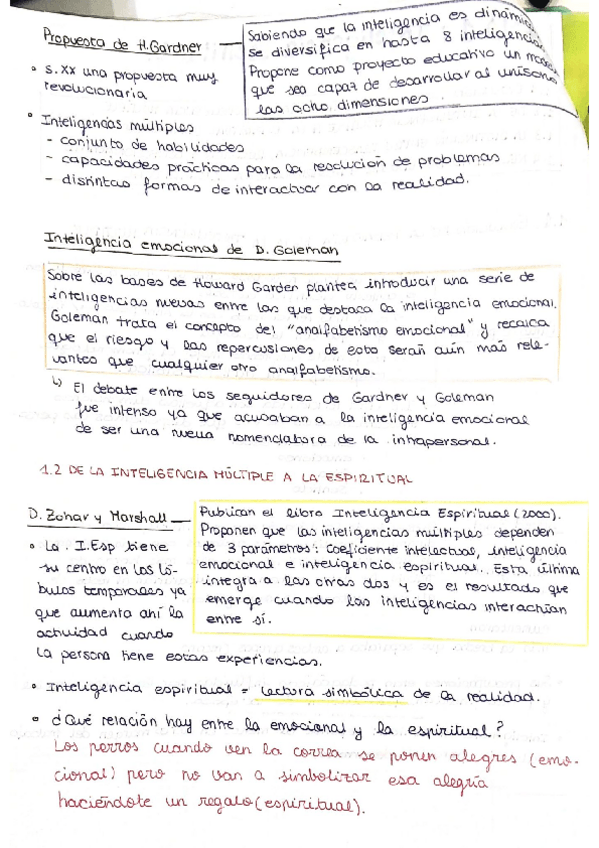 Propuesta de H.Gardner
Sabiendo que la inteligencia es dinámica
se diversifica en hasta 8 inteligencias
Propone como proyecto educativo un
que sea capaz de desarrollar al unísono
las ocho dimensiones.
• S.XX una propuesta muy
revolucionaria
• Inteligencias múltiples
- conjunto de habilidades
- capacidades prácticas para la resolución de problemas
- distintas formas de interactuar con la realidad.
Inteligencia emocional de D. Goleman
Sobre las bases de Howard Garder plantea introducir una serie de
inteligencias nuevas entre las que destaca la inteligencia emocional.
Goleman trata el concepto del "analfabetismo emocional" y recalca
que el riesgo y las repercusiones de esto serán aún más rele-
vantes que cualquier otro analfabetismo.
↳ El debate entre los seguidores de Gardner y Goleman
fue intenso ya que acusaban a la inteligencia emocional
de ser una nueva nomenclatura de la intrapersonal.
1.2 DE LA INTELIGENCIA MÚLTIPLE A LA ESPIRITUAL
D. Zohar y Marshall
Publican el libro Inteligencia Espiritual (2000).
Proponen que las inteligencias múltiples dependen
de 3 parámetros: Coeficiente intelectual, inteligencia
emocional e inteligencia espiritual. Esta última
integra a las otras dos y es el resultado que
emerge cuando las inteligencias interactúan
entre sí.
• La I.Esp tiene
su centro en los ló-
bulos temporales ya
que aumenta ahí la
actividad cuando
la persona tiene estas experiencias.
• Inteligencia espiritual = lectora simbólica de la realidad.
• ¿Qué relación hay entre la emocional y la espiritual?
Los perros cuando ven la correa se ponen alegres (emo-
cional) pero no van a simbolizar esa alegría
haciéndote un regalo (espiritual).